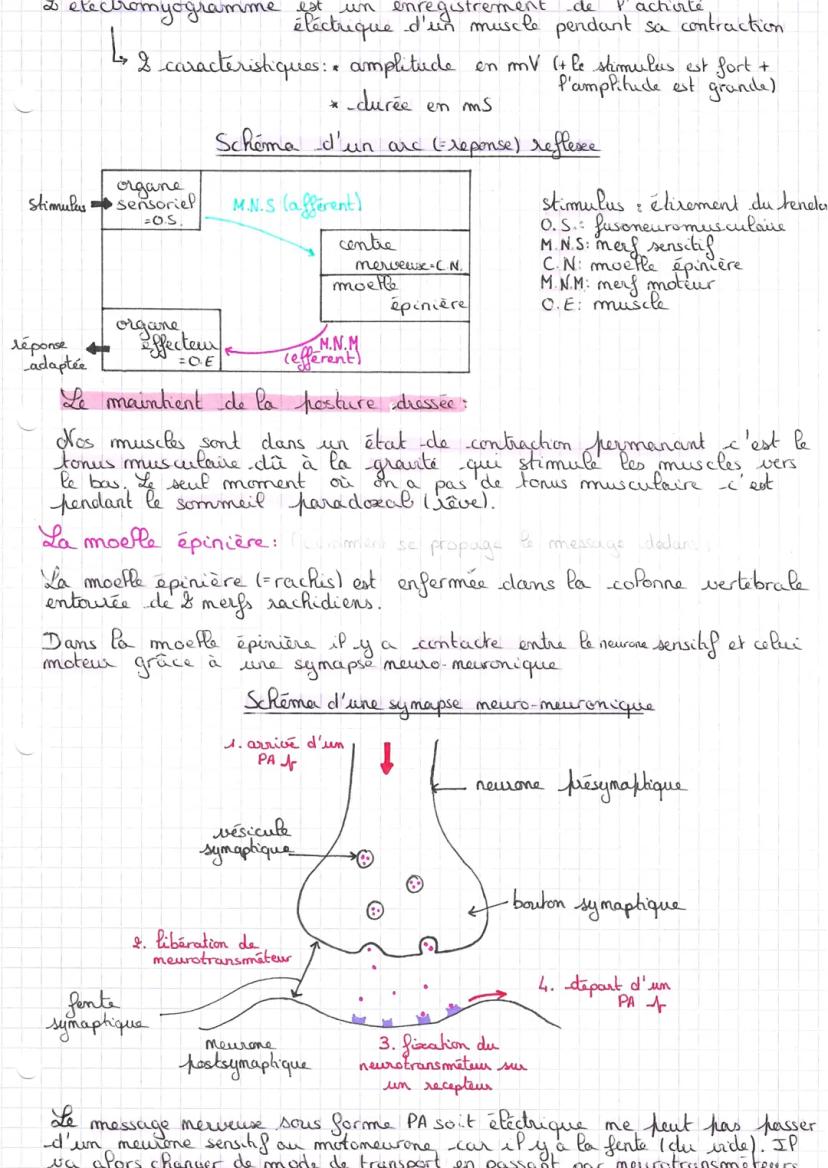 L'électromyogramme est un enregistrement de l'activité
électrique d'un muscle pendant sa contraction
↳ 2 caractéristiques: * amplitude en mV (+ le stimulus est fort +
l'amplitude est grande)
* durée en mS
Schéma d'un arc (=reponse) reflexe
stimulus
organe
sensoriel
=O.S.
M.N.S (afférent)
centre
nerveux=C.N.
moelle
épinière
organe
effecteur
=O.E
M.N.M
(efférent)
réponse
adaptée
stimulus : étirement du tendo
O.S.: fusoneuromusculaire
M.N.S: nerf sensitif
C.N: moelle épinière
M.N.M: nerf moteur
O.E: muscle
Le maintient de la posture dressée:
Nos muscles sont dans un état de contraction permanant c'est le
tonus musculaire dû à la gravité qui stimule les muscles vers
le bas. Le seul moment où on a pas de tonus musculaire c'est
pendant le sommeil paradoxal (rêve).
La moelle épinière: comment se propage le message dedans
La moelle épinière (=rachis) est enfermée dans la colonne vertébrale
entourée de 2 nerfs rachidiens.
Dans la moelle épinière il y a contacte entre le neurone sensitif et celui
moteur grâce à une synapse neuro-neuronique
Schéma d'une synapse neuro-neuronique
1. arrivé d'un
PA
neurone présynaptique
vésicule
synaptique
bouton synaptique
2. libération de
neurotransméteur
4. départ d'un
PA
fente
synaptique
neurone
postsynaptique
3. fixation du
neurotransméteur sur
un recepteur
Le message nerveuse sous forme PA soit éléctrique ne peut pas passer
d'un neurone sensitif au motoneurone car il y a la fente (du vide). Il
va alors changer de mode de transport en passant par neurotransméteurs